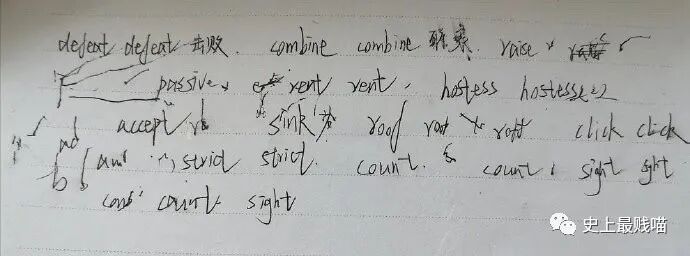 defeat defeat 击败. combine combine 联系. raise
passive rent rent. hostess hostess
accept sink roof roof click click
ad and strict strict. count. count. sight sight
b comb count sight
史上最贱喵